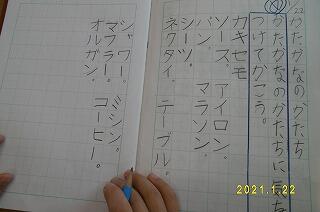 1/22
かたかなのかたち
め
かたかなのかたちに気を
つけてかこう。
カキセモ
ソース。 アイロン。
パン。 マラソン。
シーツ。
ネクタイ。 テーブル。
シャワー。 ミシン。
マフラー。
オルガン。 コーヒー。
2021.1.22